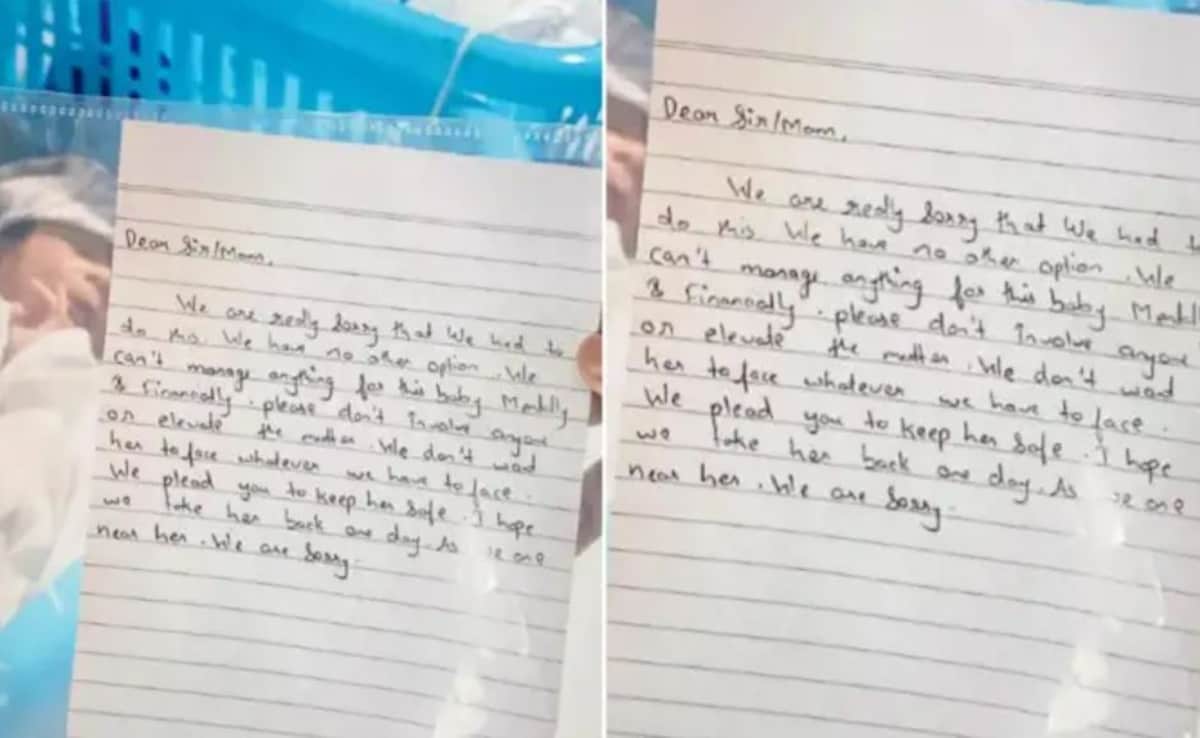 Dear Sir/Mam,
We are really Sorry that We had to
do this. We have no other option. We
can't manage anything for this baby Mentally
& Financially. please don't Involve anyone
or elevate the matter. We don't want
her to face whatever we have to face.
We plead you to keep her safe. I hope
we take her back one day. As are
near her. We are Sorry.
Dear Sir/Mam,
We are really Sorry that We had
do this. We have no other option. We
can't manage anything for this baby
& Financially. please don't Involve anyone
or elevate the matter. We don't want
her to face whatever we have to face.
We plead you to keep her safe. I hope
we take her back one day. As are
near her. We are Sorry.